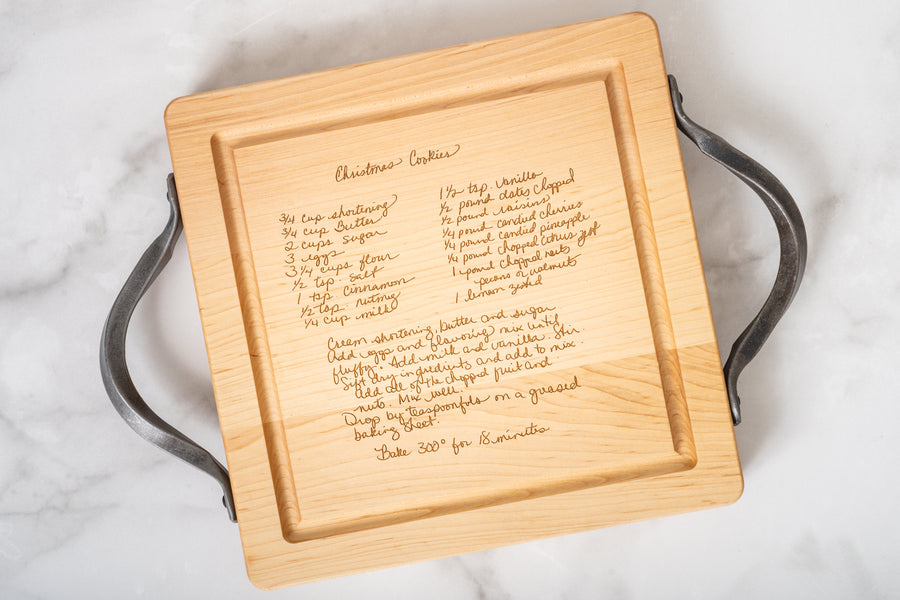 Christmas Cookies
3/4 cup shortening
3/4 cup Butter
2 cups sugar
3 eggs
3 1/4 cups flour
1/2 tsp. salt
1 tsp cinnamon
1/2 tsp. nutmeg
1/4 cup milk
1 1/2 tsp. vanilla
1/2 pound dates chopped
1/2 pound raisins
1/4 pound candied cherries
1/4 pound candied pineapple
1/4 pound chopped citrus
1 pound chopped nuts
pecans or walnuts
1 lemon zested
Cream shortening, butter and sugar
Add eggs and flavoring mix until
fluffy. Add milk and vanilla. Stir.
Sift dry ingredients and add to mix.
Add all of the chopped fruit and
nuts. Mix well.
Drop by teaspoonfuls on a greased
baking sheet.
Bake 300° for 18 minutes